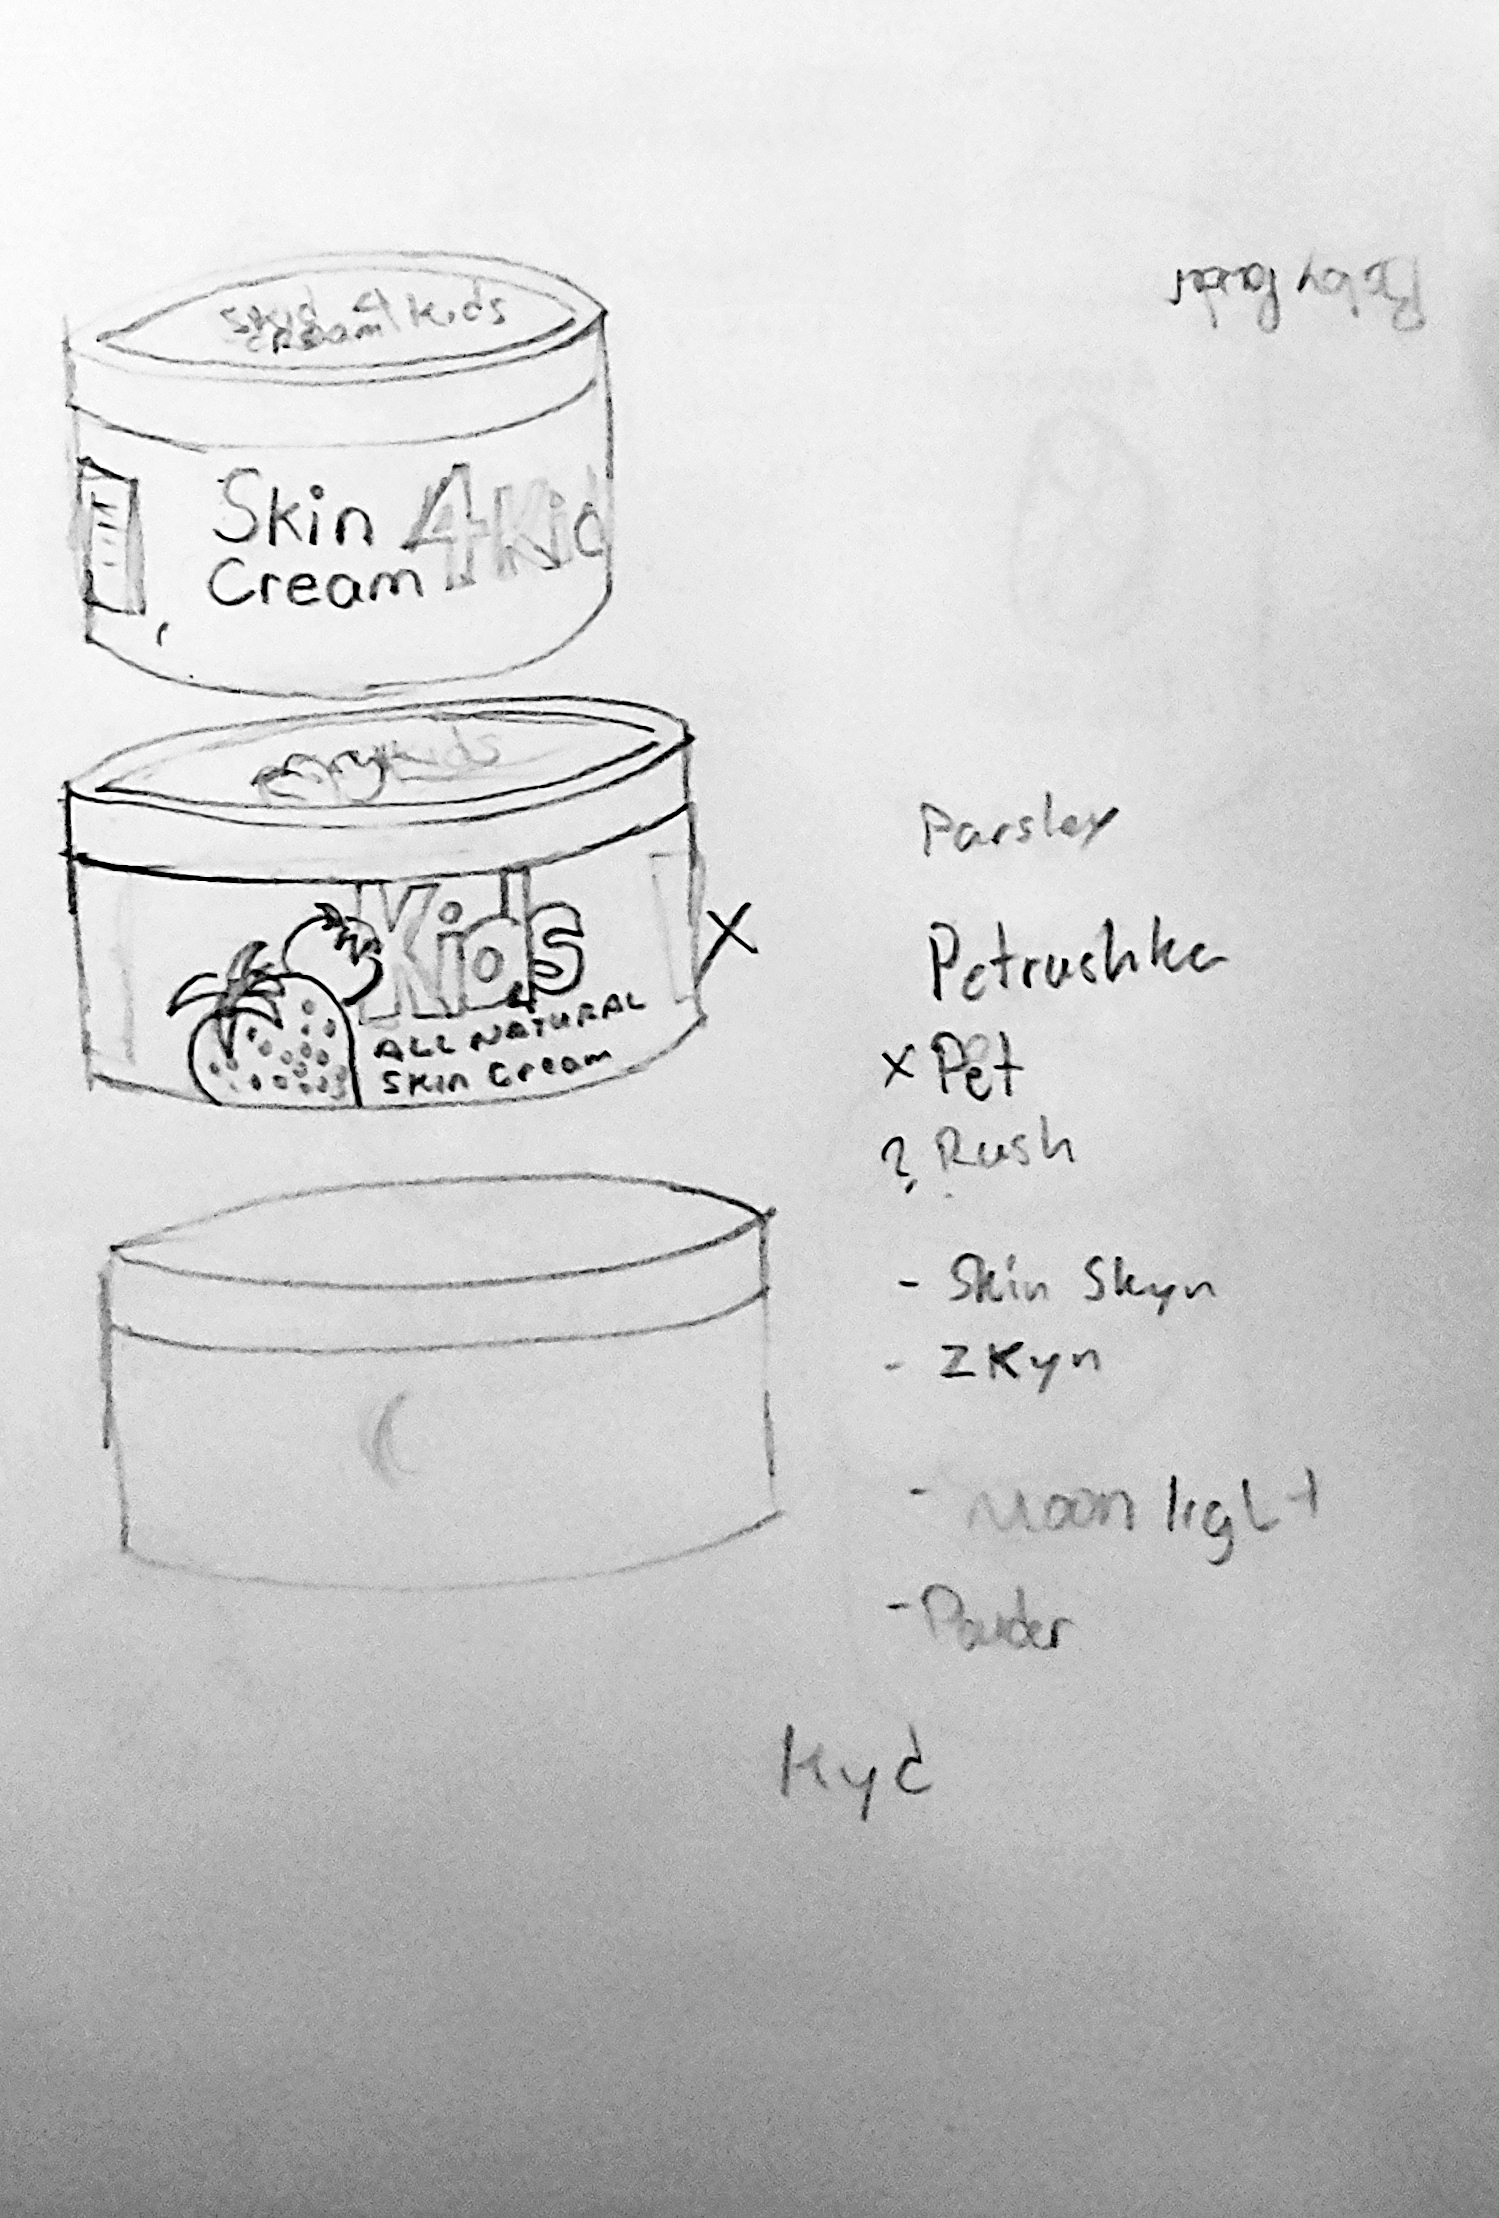 Skin 4 Kids
Cream
Skin 4 Kid
Cream
Kids
Kids
ALL NATURAL
Skin Cream
X
Baby
Parsley
Petrushka
X Pet
? Rush
- Skin Skyn
- ZKyn
- Moon light
- Powder
Kyd